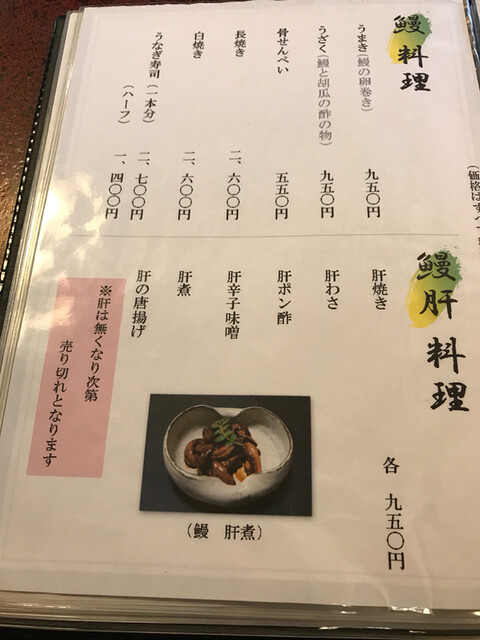 鰻料理
うまき（鰻の卵巻き） 九五〇円
うざく（鰻と胡瓜の酢の物） 九五〇円
骨せんべい 五五〇円
長焼き 二、六〇〇円
白焼き 二、六〇〇円
うなぎ寿司（一本分） 二、七〇〇円
（ハーフ） 一、四〇〇円
鰻肝料理
肝焼き
肝わさ
肝ポン酢
肝辛子味噌
肝煮
肝の唐揚げ
各 九五〇円
※肝は無くなり次第
売り切れとなります
（鰻 肝煮）
（価格は